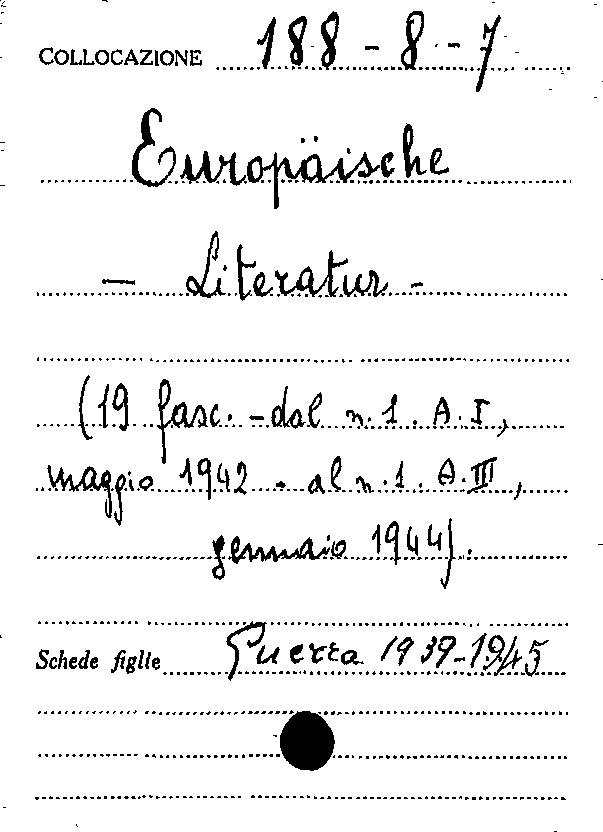 COLLOCAZIONE 188-8-7
Europäische
- Literatur -
(19 fasc. - dal n. 1. A. I,
maggio 1942 - al n. 1. A. III,
gennaio 1944).
Schede figlie Guerra 1939-1945